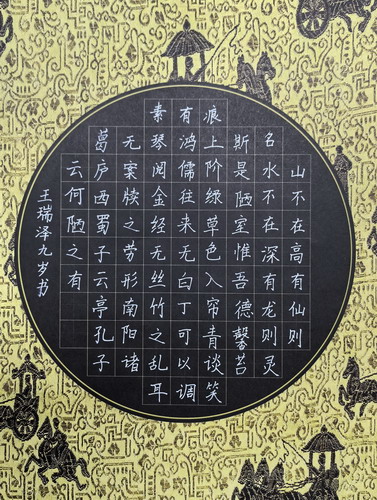 山不在高有仙则
名水不在深有龙则灵
斯是陋室惟吾德馨苔
痕上阶绿草色入帘青谈笑
有鸿儒往来无白丁可以调
素琴阅金经无丝竹之乱耳
无案牍之劳形南阳诸
葛庐西蜀子云亭孔子
云何陋之有
王瑞泽九岁书